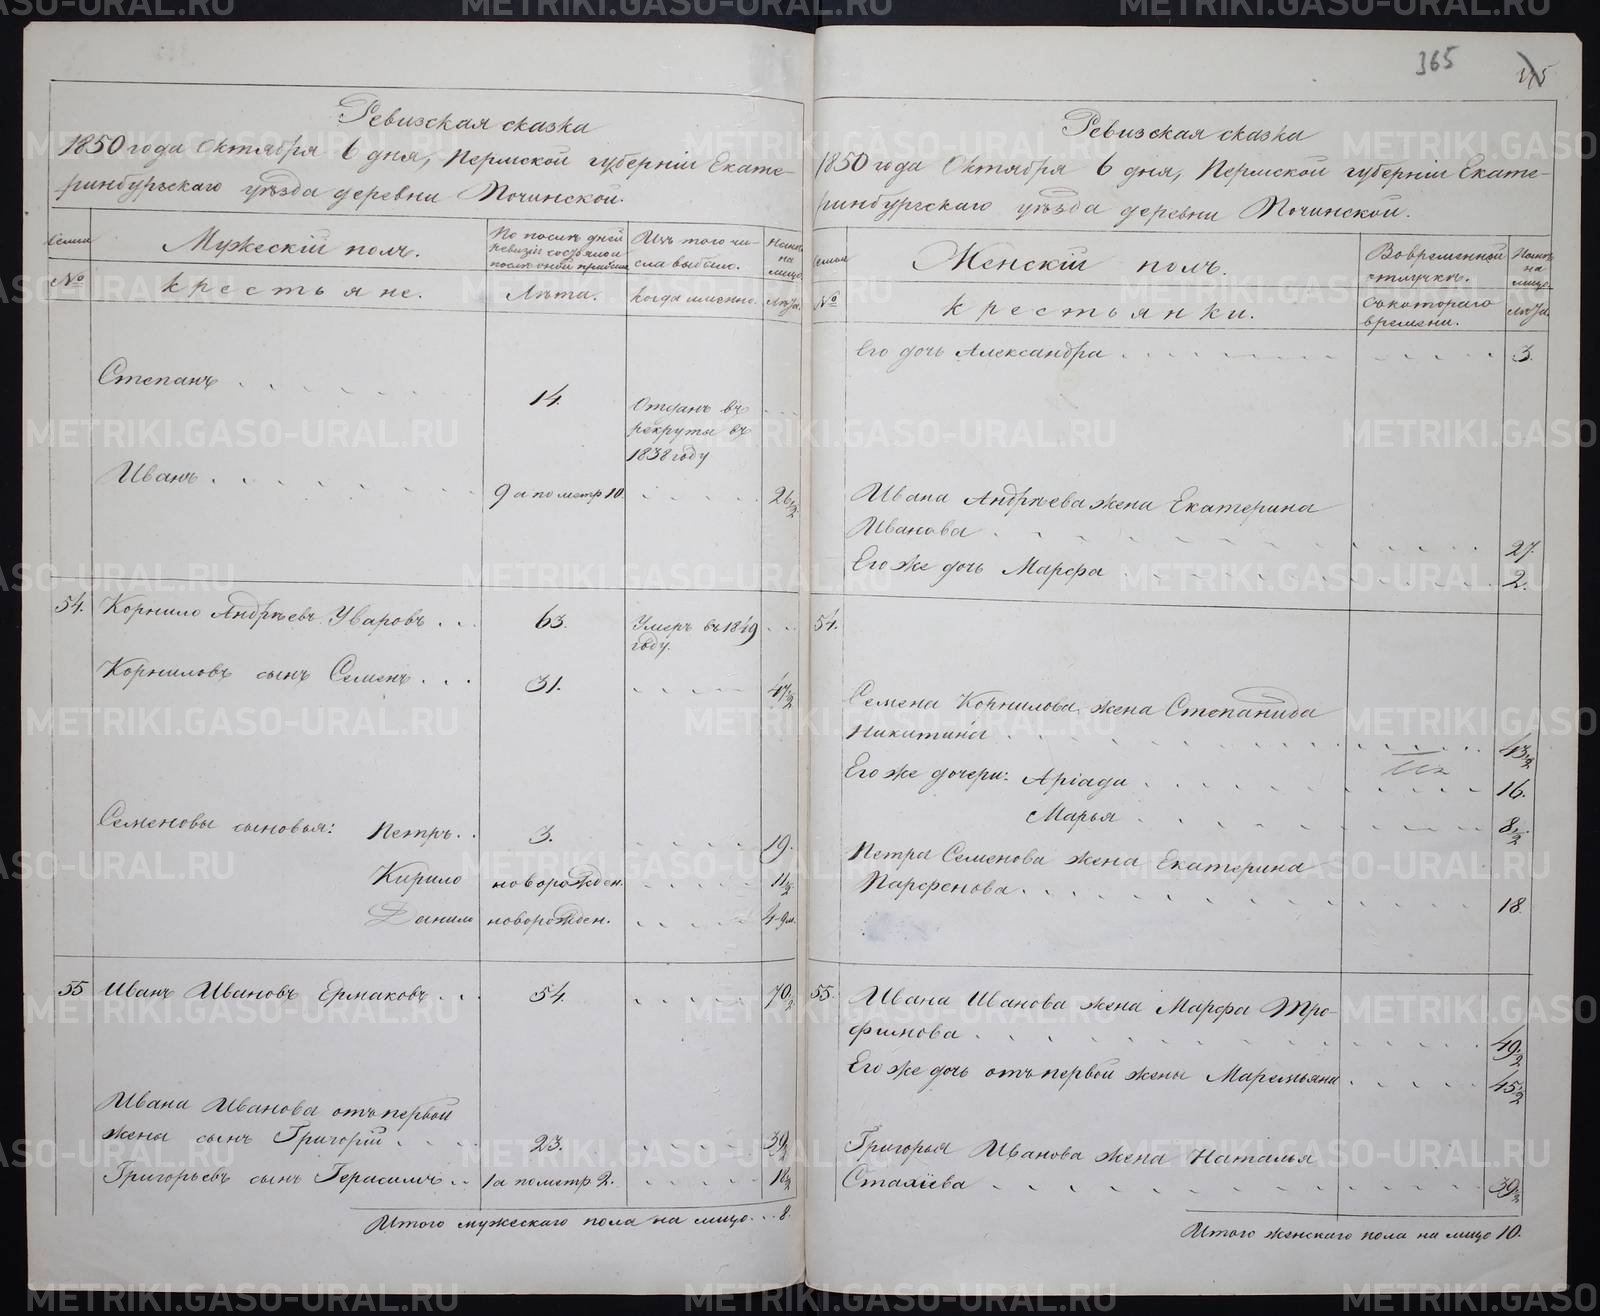 365
Ревизская сказка
1850 года Октября 6 дня, Пермской губерніи Екате-
ринбургскаго уѣзда деревни Починской.
Семьи
Мужескій полъ.
По послѣдней
ревизіи состояло и
послѣ оной прибыло
Изъ того чи-
сла выбыло.
Нынѣ
на
лицо.
№
крестьяне.
Лѣта.
когда именно.
Лѣта.
Степанъ
14.
Отданъ въ
рекруты въ
1838 году
Иванъ
9 а по метр 10.
26 1/2
54. Корнило Андрѣевъ Уваровъ
63.
Умеръ въ 1849
году.
Корниловъ сынъ Семенъ
31.
47 1/2
Семеновы сыновья: Петръ
3.
19.
Кирило
новорожден.
11 1/2
Данило
новорожден.
4. 9 м.
55 Иванъ Ивановъ Ермаковъ
54.
70 1/2
Ивана Иванова отъ первой
жены сынъ Григорій
23.
39 1/2
Григорьевъ сынъ Герасимъ
1 а по метр 2.
18 1/2
Итого мужескаго пола на лицо 8.
Ревизская сказка
1850 года Октября 6 дня, Пермской губерніи Екате-
ринбургскаго уѣзда деревни Починской.
Семьи
Женскій полъ.
Во временной
отлучкѣ.
Нынѣ
на
лицо.
№
крестьянки.
Съ котораго
времени.
лѣта.
Его дочь Александра
3.
Ивана Андрѣева жена Екатерина
Иванова
27.
Его же дочь Марфа
2.
54.
Семена Корнилова жена Степанида
Никитина
43 1/2
Его же дочери: Аріада
16.
Марья
8 1/2
Петра Семенова жена Екатерина
Парфенова
18.
55.
Ивана Иванова жена Марфа Тро-
фимова
49 1/2
Его же дочь отъ первой жены Маремьяна
45 1/2
Григорья Иванова жена Наталья
Стахіева
39 1/2
Итого женскаго пола на лицо 10.
METRIKI.GASO-URAL.RU